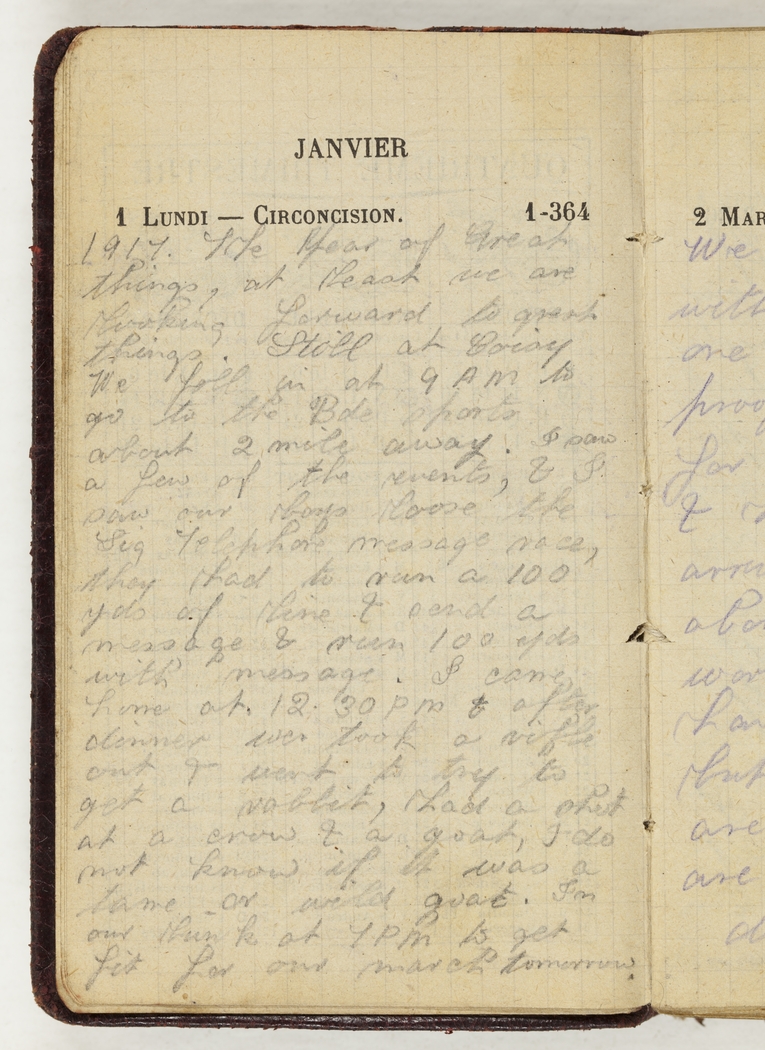 JANVIER
1 LUNDI — CIRCONCISION. 1-364
1917. The Year of Great
things, at least we are
looking forward to great
things. Still at
We fall in at 9 AM to
go to the Bde sports
about 2 mile away. I saw
a few of the events, & I
saw our boys loose the
Sig Telephone message race,
they had to run a 100
yds of line & send a
message & run 100 yds
with message. I came
home at. 12.30 PM & after
dinner we took a rifle
out & went to try to
get a rabbit, had a shot
at a crow & a goat, I do
not know if it was a
tame or wild goat. In
our bunk at 7 PM to get
fit for our march tomorrow
2 MAR
We
with
are
for
&
are
are